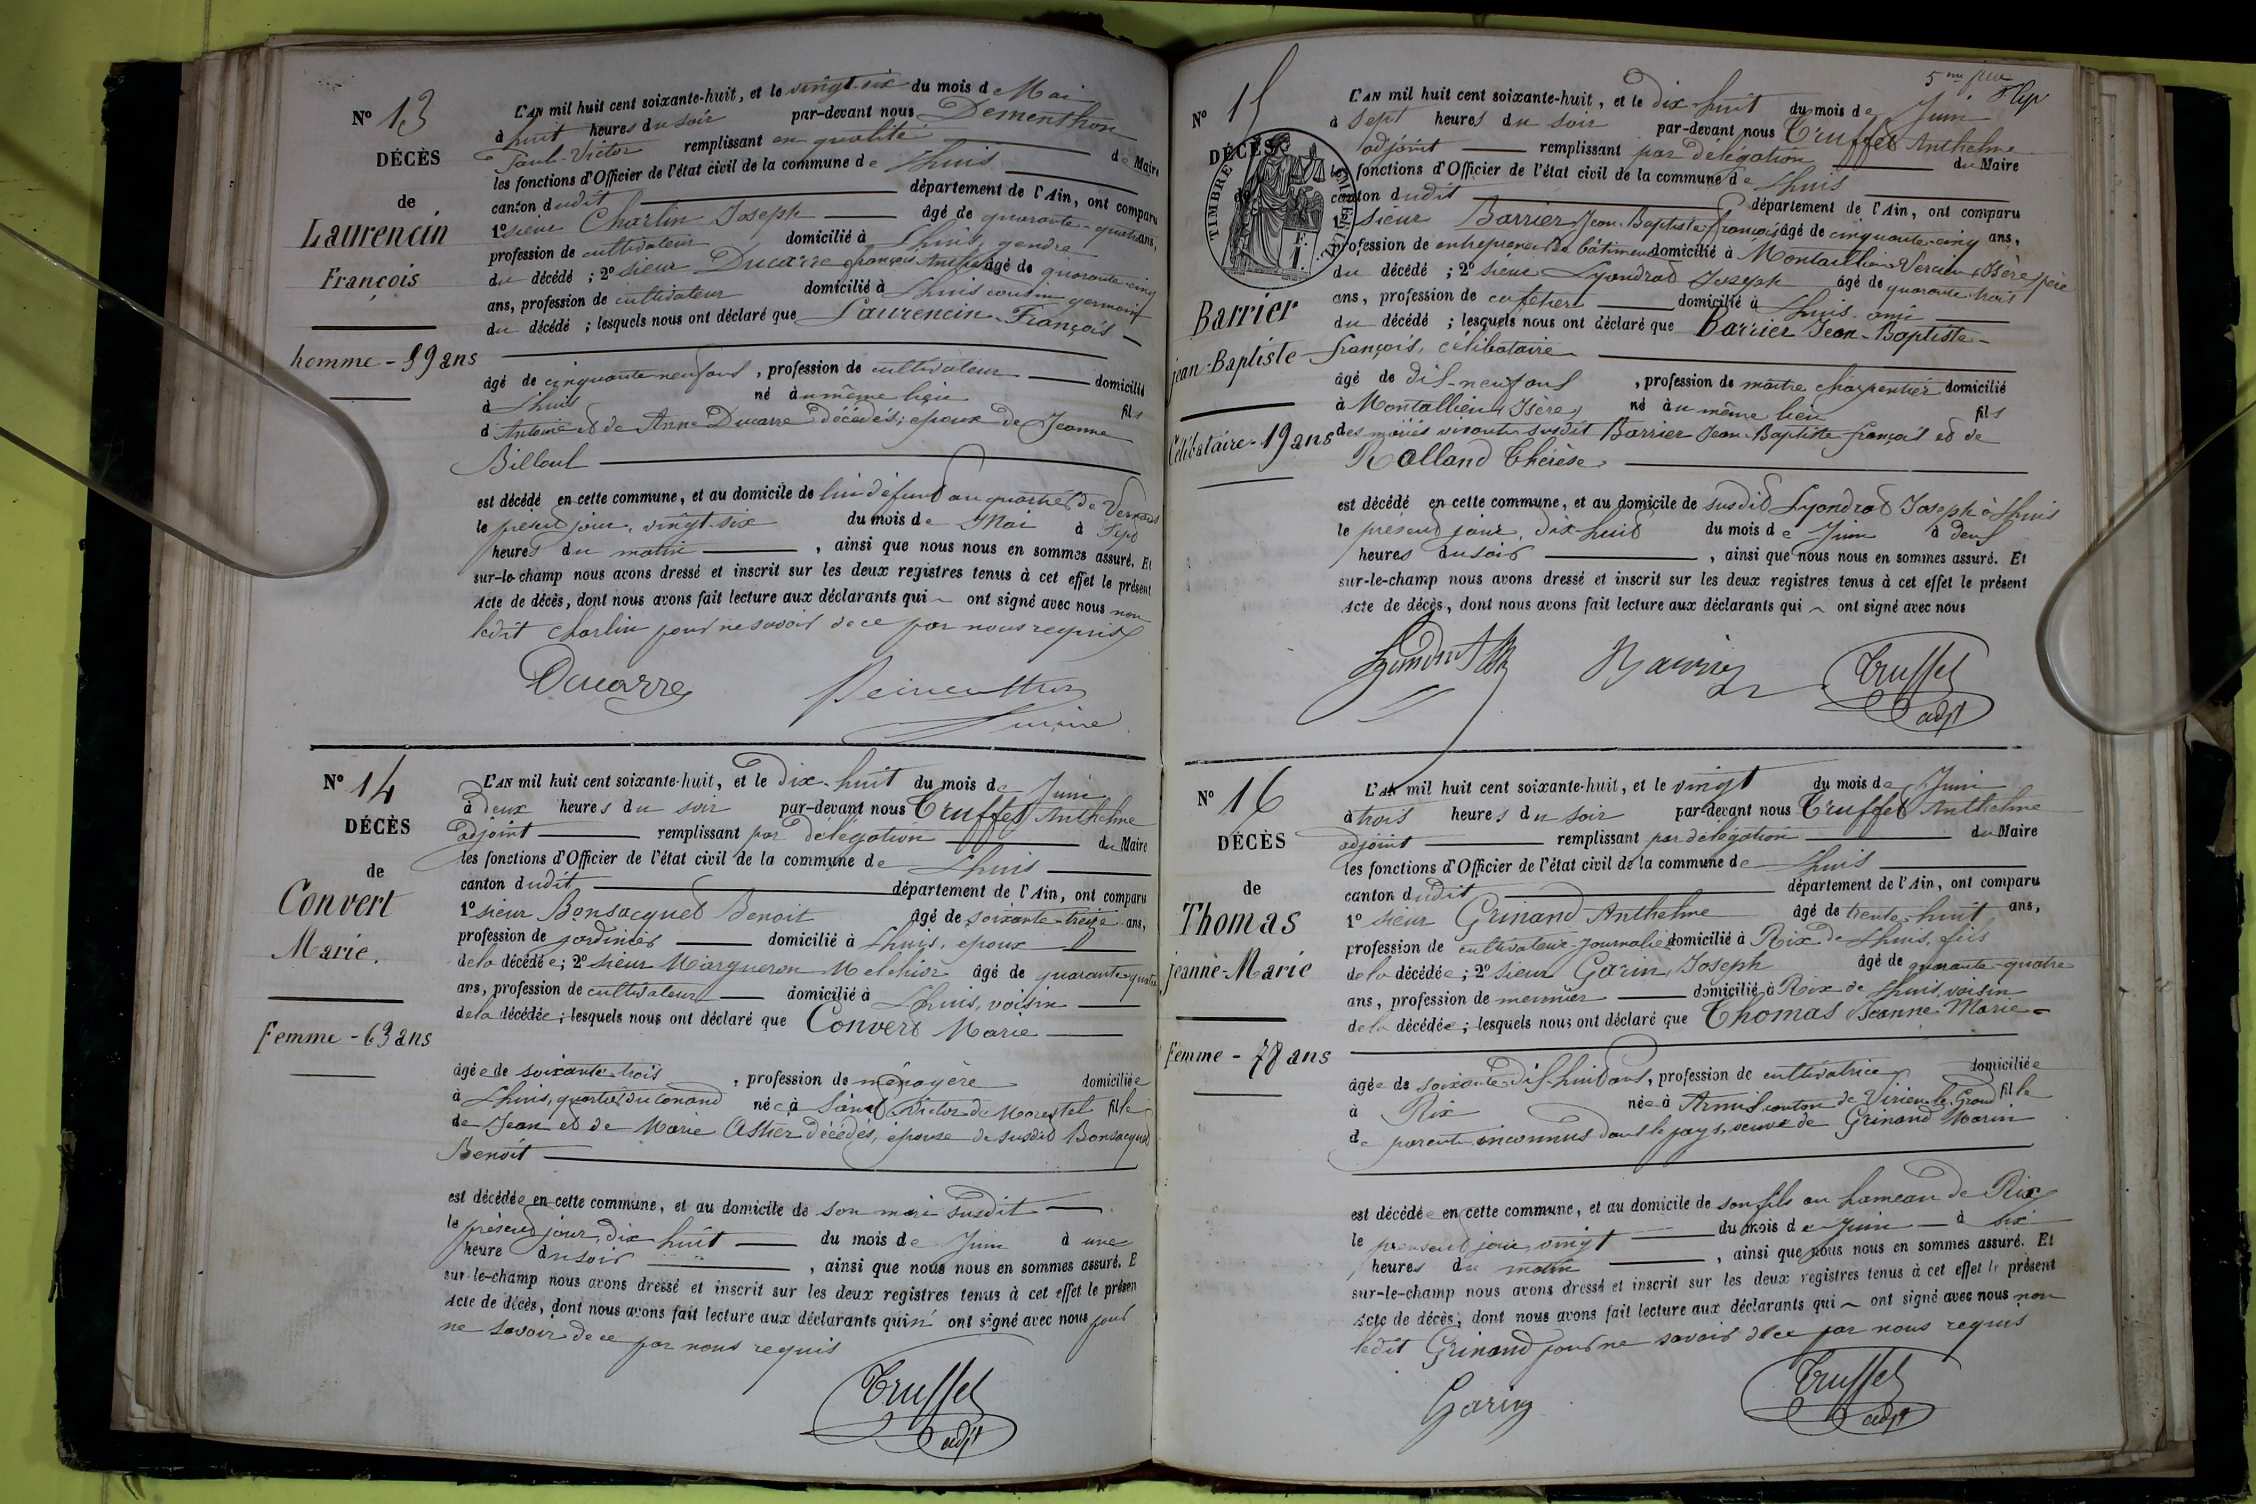 N° 13
DÉCÈS
de
Laurencin
François
homme - 59 ans
L'AN mil huit cent soixante-huit, et le vingt-six du mois de Mai
à huit heures du soir par-devant nous Dementhon
Paul-Victor remplissant en qualité de Maire
les fonctions d'Officier de l'état civil de la commune de Lhuis
canton dudit département de l'Ain, ont comparu
1° sieur Charlin Joseph âgé de quarante-quatre ans,
profession de cultivateur domicilié à Lhuis, gendre
du décédé ; 2° sieur Ducarre françois Anthelme âgé de quarante-cinq
ans, profession de cultivateur domicilié à Lhuis cousin germain
du décédé ; lesquels nous ont déclaré que Laurencin François
âgé de cinquante-neuf ans, profession de cultivateur domicilié
à Lhuis né au même lieu fils
d'Antoine et de Anne Ducarre décédés ; époux de Jeanne
Billoud
est décédé en cette commune, et au domicile de lui défunt au quartier de
le présent jour, vingt-six du mois de Mai à sept
heures du matin, ainsi que nous nous en sommes assuré. Et
sur-le-champ nous avons dressé et inscrit sur les deux registres tenus à cet effet le présent
Acte de décès, dont nous avons fait lecture aux déclarants qui ont signé avec nous non
ledit Charlin pour ne savoir de ce par nous requis
Ducarre Dementhon
maire
N° 14
DÉCÈS
de
Convert
Marie.
Femme - 63 ans
L'AN mil huit cent soixante-huit, et le dix-huit du mois de Juin
à deux heures du soir par-devant nous Truffet Anthelme
adjoint remplissant par délégation du Maire
les fonctions d'Officier de l'état civil de la commune de Lhuis
canton dudit département de l'Ain, ont comparu
1° sieur Bonsacquet Benoit âgé de soixante-treize ans,
profession de jardinier domicilié à Lhuis, epoux
de la décédée ; 2° sieur Margueron Melchior âgé de quarante-quatre
ans, profession de cultivateur domicilié à Lhuis, voisin
de la décédée ; lesquels nous ont déclaré que Convert Marie
âgée de soixante-trois, profession de ménagère domiciliée
à Lhuis, quartier du Conand née à Saint Victor de Morestel fille
de Jean et de Marie Astier décédés, épouse de susdit Bonsacquet
Benoit
est décédée en cette commune, et au domicile de son mari susdit
le présent jour, dix huit du mois de Juin à une
heure du soir, ainsi que nous nous en sommes assuré. E
sur-le-champ nous avons dressé et inscrit sur les deux registres tenus à cet effet le présen
Acte de décès, dont nous avons fait lecture aux déclarants qui n' ont signé avec nous pour
ne savoir de ce par nous requis
Truffet
adjt
5me
N° 15
DÉCÈS
de
TIMBRE IMPÉRIAL
F.
1.
Barrier
jean-Baptiste
Célibataire - 19 ans
L'AN mil huit cent soixante-huit, et le dix-huit du mois de Juin
à sept heures du soir par-devant nous Truffet Anthelme
adjoint remplissant par délégation du Maire
les fonctions d'Officier de l'état civil de la commune de Lhuis
canton dudit département de l'Ain, ont comparu
1° sieur Barrier Jean-Baptiste françois âgé de cinquante-cinq ans,
profession de entrepreneur de bâtiment domicilié à Montallieu-Vercieu (Isère) père
du décédé ; 2° sieur Lyondrat Joseph âgé de quarante-trois
ans, profession de cafetier domicilié à Lhuis ami
du décédé ; lesquels nous ont déclaré que Barrier Jean-Baptiste-
françois, célibataire
âgé de dix-neuf ans, profession de maître charpentier domicilié
à Montallieu (Isère) né au même lieu fils
des mariés vivants susdit Barrier Jean-Baptiste françois et de
Rolland Thérèse
est décédé en cette commune, et au domicile de susdit Lyondrat Joseph à Lhuis
le présent jour, dix-huit du mois de Juin à deux
heures du soir, ainsi que nous nous en sommes assuré. Et
sur-le-champ nous avons dressé et inscrit sur les deux registres tenus à cet effet le présent
Acte de décès, dont nous avons fait lecture aux déclarants qui ont signé avec nous
Barrier Truffet
adjt
N° 16
DÉCÈS
de
Thomas
jeanne-Marie
Femme - 78 ans
L'AN mil huit cent soixante-huit, et le vingt du mois de Juin
à trois heures du soir par-devant nous Truffet Anthelme
adjoint remplissant par délégation du Maire
les fonctions d'Officier de l'état civil de la commune de Lhuis
canton dudit département de l'Ain, ont comparu
1° sieur Grinand Anthelme âgé de trente-huit ans,
profession de cultivateur-journalier domicilié à Rix de Lhuis, fils
de la décédée ; 2° sieur Garin Joseph âgé de quarante-quatre
ans, profession de meunier domicilié à Rix de Lhuis, voisin
de la décédée ; lesquels nous ont déclaré que Thomas Jeanne-Marie
âgée de soixante-dix-huit ans, profession de cultivatrice domiciliée
à Rix née à Armix canton de Virieu-le-Grand fille
de parents inconnus dans le pays, veuve de Grinand Marin
est décédée en cette commune, et au domicile de son fils au hameau de Rix
le présent jour, vingt du mois de Juin à six
heures du matin, ainsi que nous nous en sommes assuré. Et
sur-le-champ nous avons dressé et inscrit sur les deux registres tenus à cet effet le présent
Acte de décès, dont nous avons fait lecture aux déclarants qui ont signé avec nous non
ledit Grinand pour ne savoir de ce par nous requis
Garin Truffet
adjt